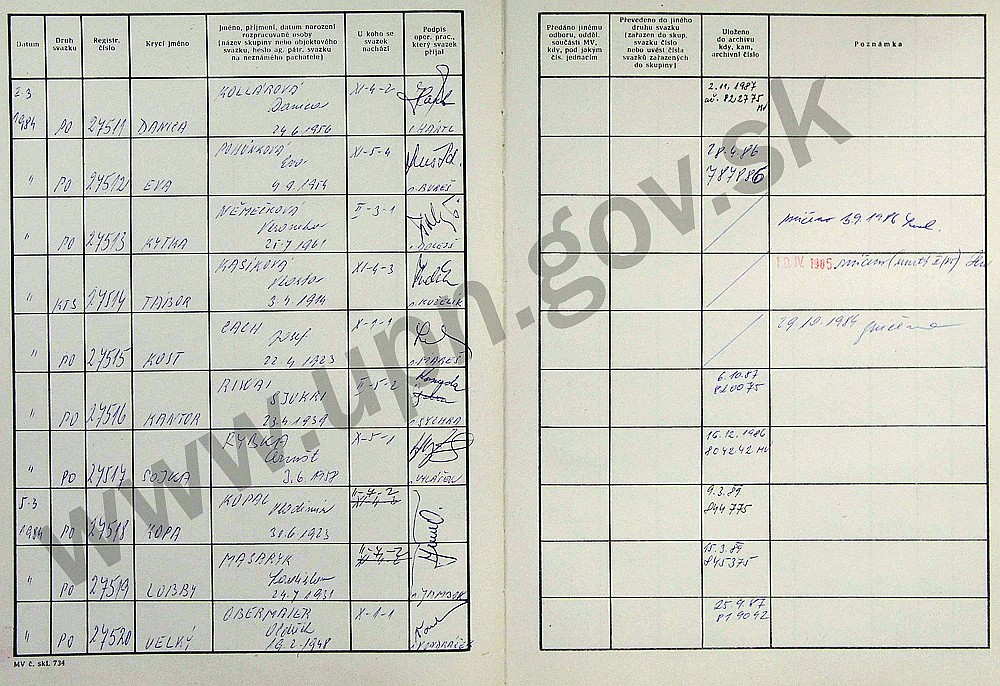 Datum
Druh svazku
Registr. číslo
Krycí jméno
Jméno, příjmení, datum narození
rozpracované osoby
(název skupiny nebo objektového
svazku, heslo ag. pátr. svazku
na neznámého pachatele)
U koho se
svazek
nachází
Podpis
oper. prac.,
který svazek
přijal
Předáno jinému
odboru, odděl.
součásti MV,
kdy, pod jakým
čís. jednacím
Převedeno do jiného
druhu svazku
(zařazen do skup.
svazku číslo
nebo uvést čísla
svazků zařazených
do skupiny)
Uloženo
do archivu
kdy, kam,
archivní číslo
Poznámka
2.3
1984 PO 27511 DANICA
KOLLÁROVÁ
Danica
24.6.1956
XI-4-2
HÁRTL
2.11.1987
822775 MV
" PO 27512 EVA
Eva
4.9.1954
XI-5-4
BUREŠ
28.4.86
787886
" PO 27513 KYTKA
NĚMEČKOVÁ
Veronika
25.7.1961
II-3-1
zničeno 3.9.1986
" KTS 27514 TÁBOR
KASÍKOVÁ
Vlasta
3.4.1914
XI-4-3
10. IV. 1985
" PO 27515 KOST
CACH
Josef
22.4.1923
X-1-1
MAREŠ
29.10.1984 zničeno
" PO 27516 KANTOR
SJUKRI
23.4.1939
II-5-2
SYCHRA
6.10.87
820075
" PO 27517 SOJKA
RYBKA
Arnošt
3.6.1958
X-5-1
16.12.1986
804242 MV
5.3
1984 PO 27518 KOPA
KOPAL
Vladimír
31.6.1923
II-7-2
9.3.89
844775
" PO 27519 LOBBY
MASARYK
Ladislav
24.7.1931
II-7-2
JAMBOR
15.3.89
845375
" PO 27520 VELKÝ
OBERMAIER
Oldřich
19.2.1948
X-1-1
VONDRÁČEK
25.9.87
819092
MV č. skl. 734
www.upn.gov.sk